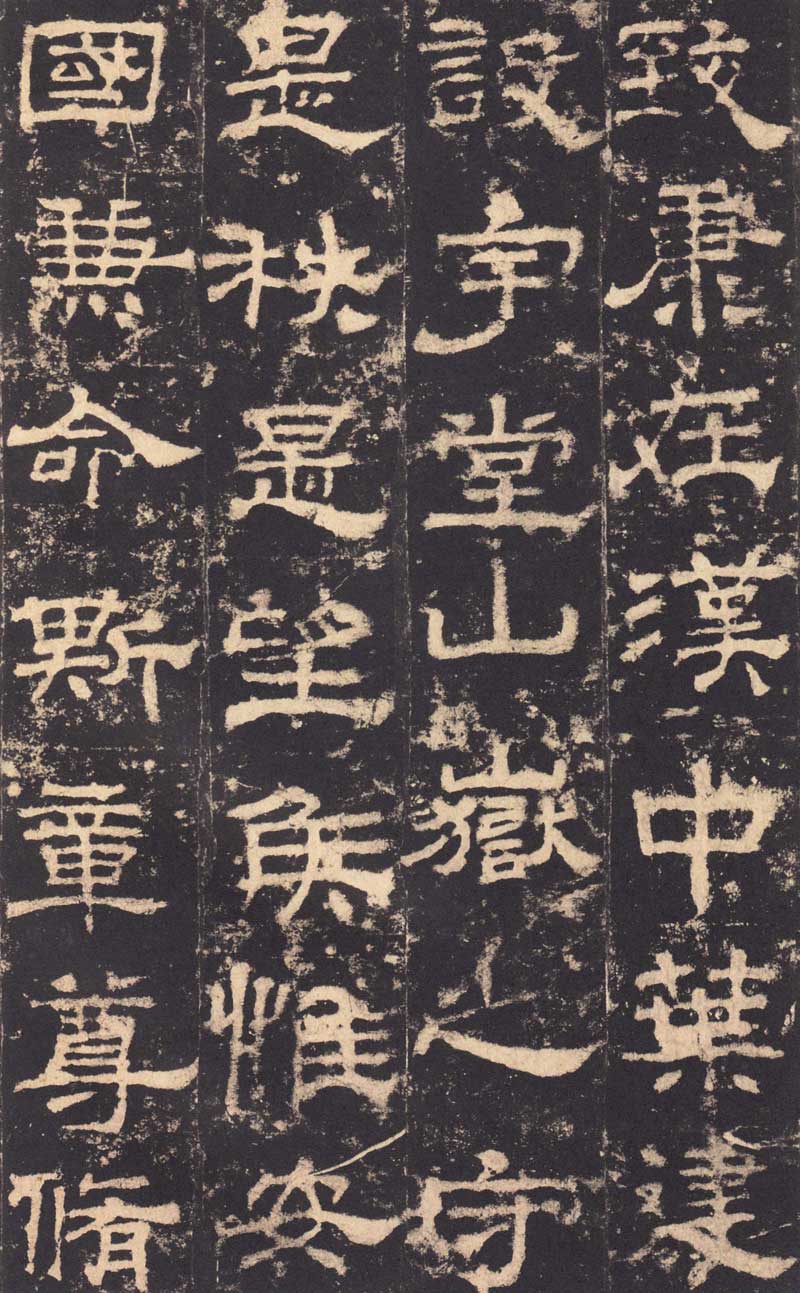 致康在漢中葉建
設宇堂山嶽之守
是秩是望侯惟安
國兼命斯章尊脩